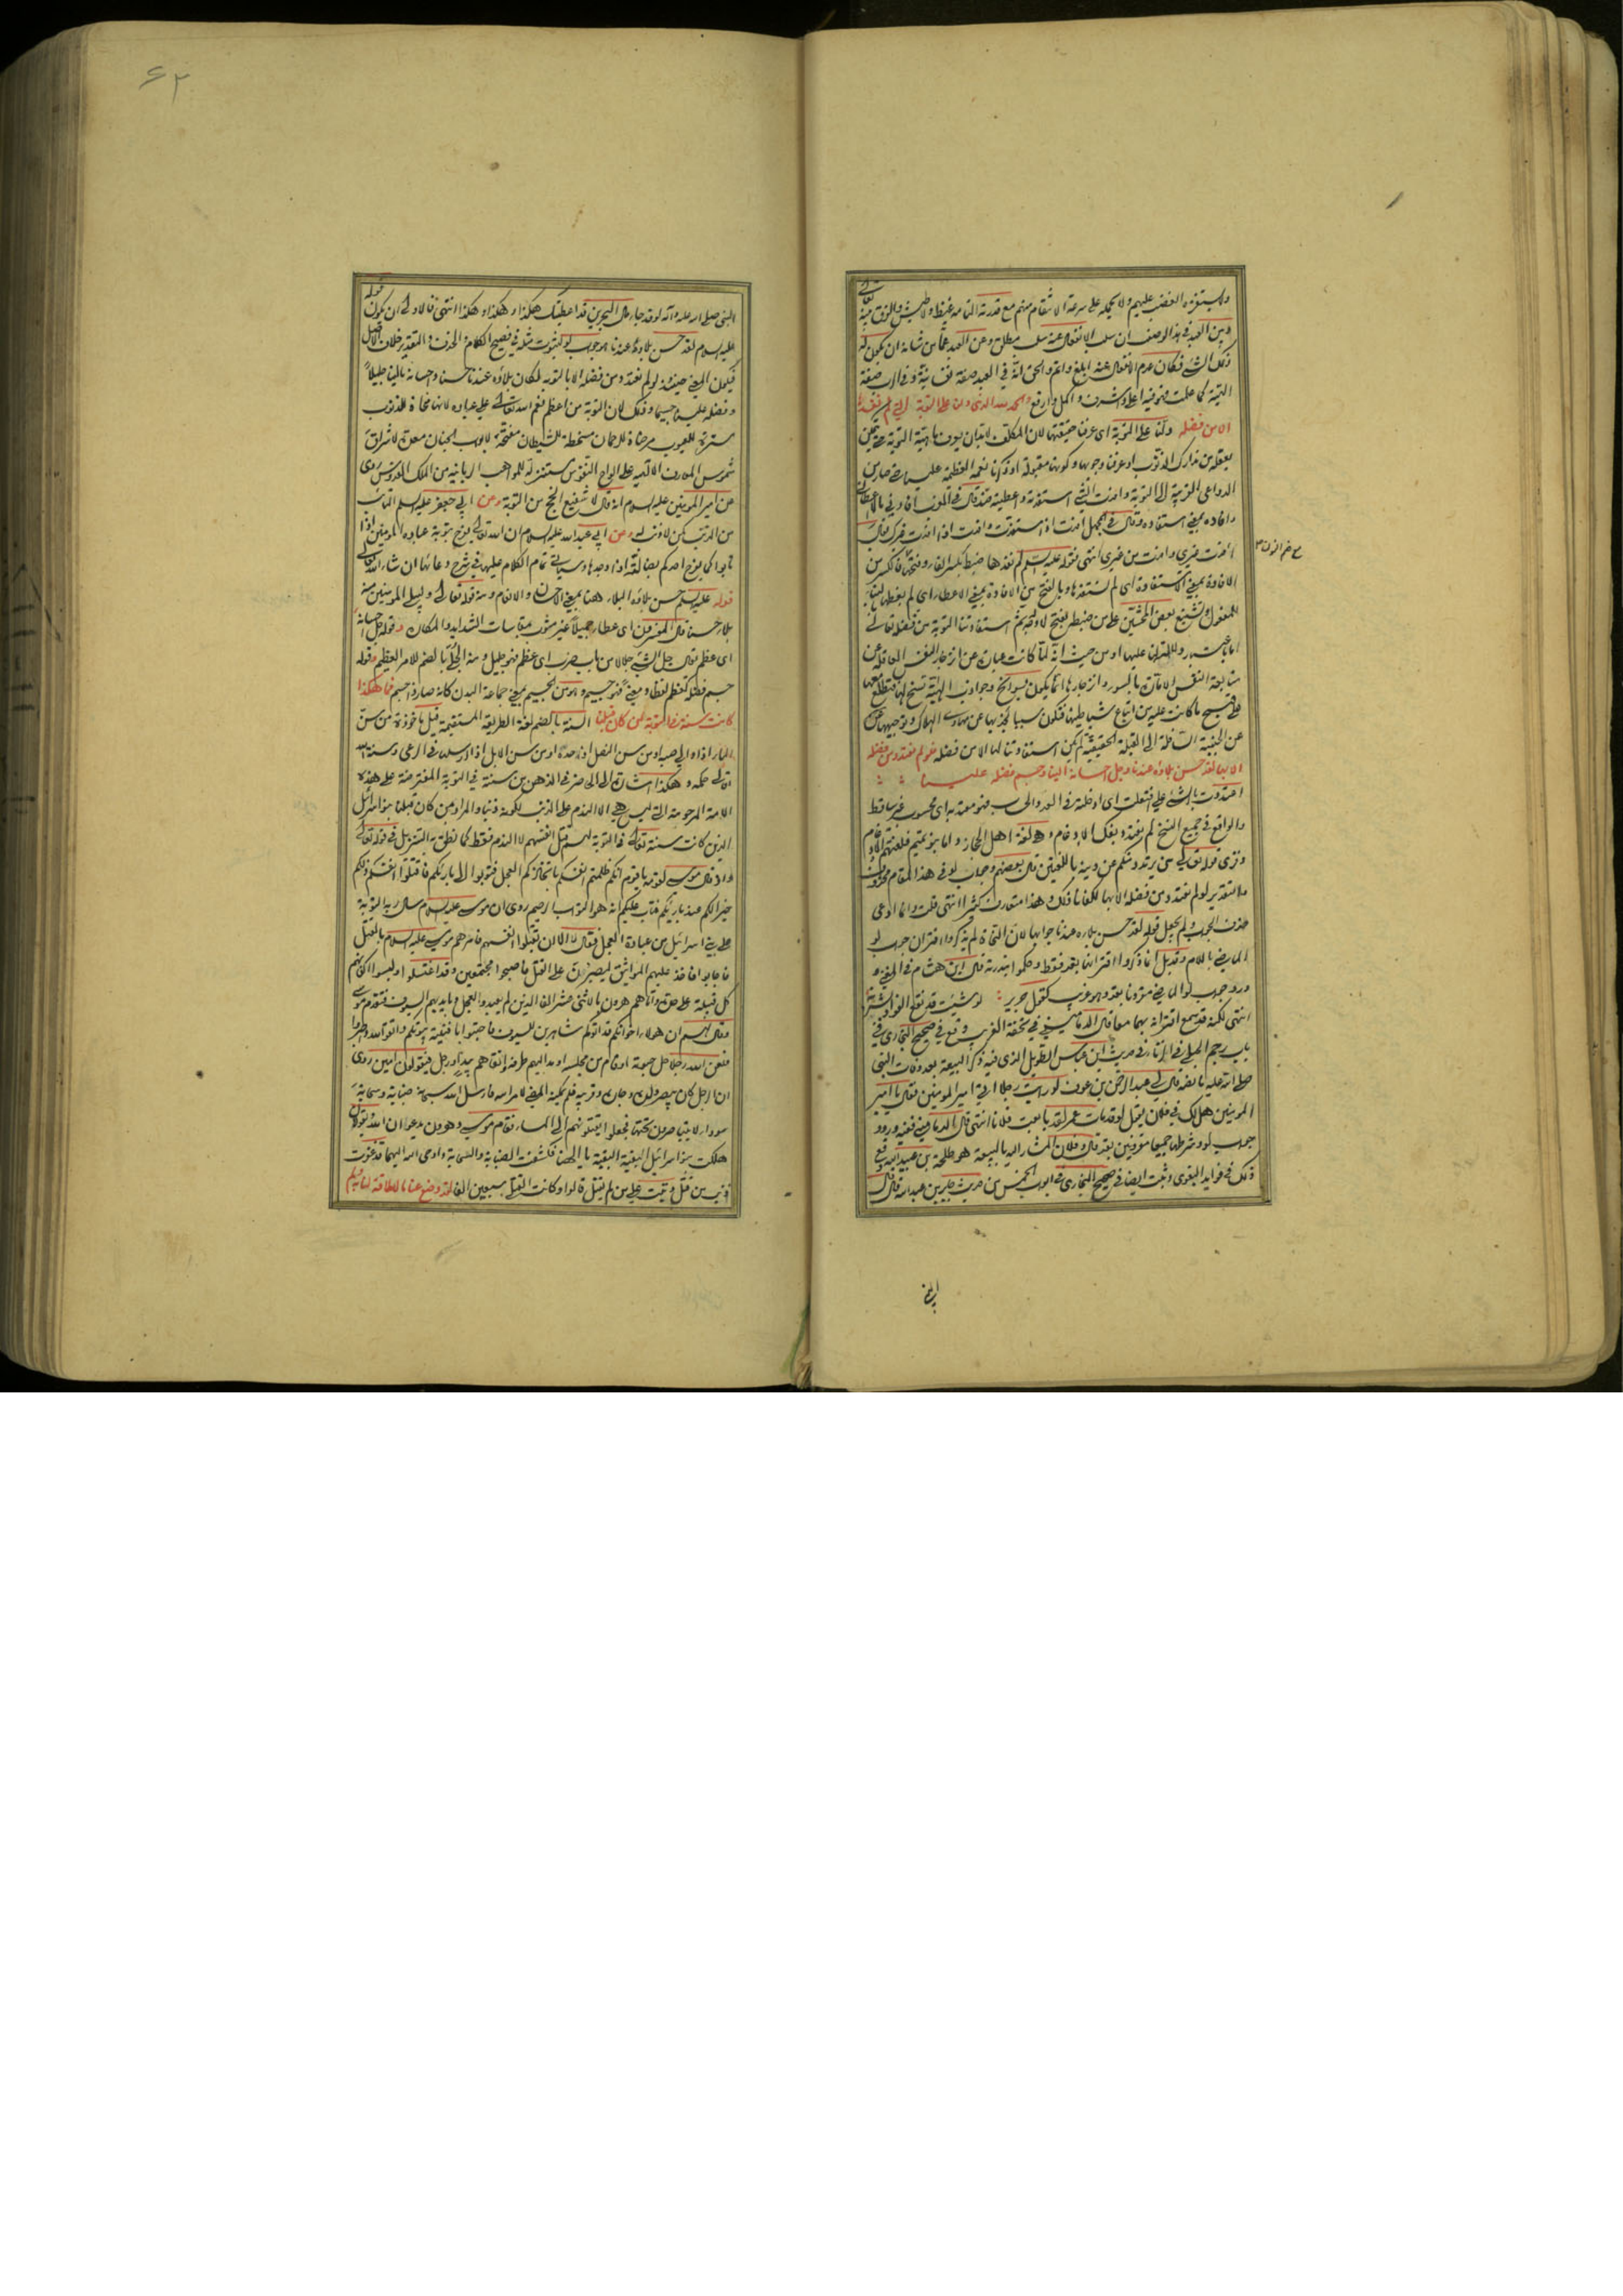 ولا يستفزه الغضب عليهم ولا يحمله على سرعة الانتقام منهم مع قدرته التامة غيظ ولا طيش والفرق بينه تعالى
وبين العبد في هذا الوصف ان سلب الانفعال عنه سلب مطلق وعن العبد عما من شانه ان يكون له
ذلك الشئ فكان عدم الانفعال عنه ابلغ واتم والحق انه في العبد صفة نفسانية وفي الرب صفة
الهية كما علمت فهو فيه اعلى واشرف واكمل وارفع والحمد لله الذي دلنا على التوبة التي لم نفدها
الا من فضله دلنا على التوبة اى عرفنا حقيقتها لان المكلف لا بد ان يعرف ماهية التوبة حتى
من تدارك الذنوب او عرفنا وجوبها وكونها مقبولة
الدواعى الى التوبة وافدت الشئ استفدته واعطيته ضد قال في
وافاده بمعنى استفاده وقال في المجمل افدت اذا استفدت وافدت اذا افدت غيرك يقال
افدت غيرى وافدت من غيرى انتهى قوله عليه السلم لم نفدها ضبط بكسر الفاء وفتحها فالكسر من
الافادة بمعنى الاستفادة اى لم نستفدها وبالفتح من الافادة بمعنى الاعطاء اى لم نعطها
للمفعول وشنع بعض المحشين على من ضبطه بالفتح استفادتنا التوبة من فضله تعالى
اما باعتبار دلالته لنا عليها او من حيث انه لما كانت عبارة عن انزجار النفس العاقلة عن
متابعة النفس الامارة بالسوء وانزجارها انما يكون بسوانح وجواذب الهية تسنح لها فتطلع معها
على قبيح ما كانت عليه من اتباع شياطينها فتكون سببا لجذبها عن مهاوى الهلاك وتوجيهها
عن الجنبة السافلة الى القبلة الحقيقية لم يكن استفادتنا لها الا من فضله فلو لم نعتدد من فضله
الا بها لقد حسن بلاؤه عندنا وجل احسانه الينا وجسم فضله علينا
اعتددت بالشئ على افتعلت اى ادخلته في العد والحساب فهو معتد به اى محسوب غير ساقط
والواقع في جميع النسخ لم نعتدد بفك الادغام وهو لغة اهل الحجاز واما بنو تميم فلغتهم الادغام
وقرى قوله تعالى من يرتدد منكم عن دينه باللغتين قال بعضهم وجواب لو في هذا المقام محذوف
والتقدير لو لم نعتدد من فضله الا بها لكفانا ذلك وهذا متعارف كثير انتهى قلت وانما ادعى
حذف الجواب ولم يجعل قوله لقد حسن بلاؤه عندنا جوابها لان النحاة لم يذكروا اقتران جواب لو
الماضى باللام وقد بل انما ذكروا اقترانها بقد فقط وحكموا بندرته قال ابن هشام في المغنى و
ورد جواب لو الماضى مقرونا بقد وهو غريب كقول جرير لو شئت قد نقع الفؤاد بشربة
انتهى لكنه قد سمع اقترانه بهما معا قال الدمامينى في تحفة الغريب وقع في صحيح البخارى في
باب رجم الحبلى في الزنا في حديث ابن عباس الطويل الذى فيه ذكر البيعة بعد وفات النبى
صلى الله عليه ما نصه قال لى عبد الرحمن بن عوف لو رايت رجلا اتى امير المومنين فقال يا امير
المومنين هل لك في فلان يقول لو قد مات عمر لقد بايعت فلانا انتهى قال الدمامينى ففيه ورود
جواب لو وشرطها جميعا مقرونين بقد قال وفلان المشار اليه بالبيعة هو طلحة بن عبيد الله وقع
ذلك في فوايد البغوى وثبت ايضا في صحيح البخارى في ابواب الخمس من حديث جابر بن عبد الله قال قال
النبى
النبى صلى الله عليه واله لو قد جاء مال البحرين قد اعطيتك هكذا وهكذا وهكذا انتهى فالاولى ان يكون قوله
عليه السلام لقد حسن بلاؤه عندنا هو جواب لو لثبوت مثله في فصيح الكلام والحذف والتقدير خلاف الاصل
فيكون المعنى حينئذ لو لم نعتدد من فضله الا بالتوبة لكان بلاؤه عندنا حسنا واحسانه الينا جليلا
وفضله علينا جسيما وذلك لان التوبة من اعظم نعم الله تعالى على عباده لانها محاة للذنوب
سترة للعيوب مرضاة للرحمان مسخطة للشيطان مفتحة لابواب الجنان معدة لاشراق
شموس المعارف الالهيه على الواح النفوس مستنزلة للمواهب الربانية من الملك القدوس روى
عن امير المومنين عليه السلام انه قال لا شفيع انجح من التوبة وعن ابى جعفر عليه السلم التائب
من الذنب كمن لا ذنب له وعن ابى عبد الله عليه السلام ان الله تعالى يفرح بتوبة عباده المومنين اذا
تابوا كما يفرح احدكم بضالته اذا وجدها وسياتى تمام الكلام عليها في شرح دعائها ان شاء الله تعالى
قوله عليه السلم حسن بلاؤه البلاء ههنا بمعنى الاحسان والانعام ومنه قوله تعالى وليبلى المومنين منه
بلاء حسنا قال المفسرون اى عطاء جميلا غير مشوب بمقاسات الشدايد والمكاره وقوله جل احسانه
اى عظم يقال جل الشئ جلالا من باب ضرب اى عظم فهو جليل ومنه الجلى بالضم للامر العظيم وقوله
جسم فضله كعظم لفظا ومعنى فهو جسيم وهو من الجسم بمعنى جماعة البدن كانه صار ذا جسم فما هكذا
كانت سنته في التوبة لمن كان قبلنا السنة بالضم لغة الطريقة المستقيمة قيل ماخوذة من سن
الماء اذا والى صبه او من سن النصل اذا حده او من سن الابل اذا ارسلها في الرعى وسنة الله
تعالى حكمه وهكذا اشارة الى الحاضر في الذهن من سنته في التوبة المفترضة على هذه
الامة المرحومة التى ليس هى الا الندم على الذنب لكونه ذنبا والمراد بمن كان قبلنا بنو اسرائيل
الذين كانت سنته تعالى في التوبة لهم قتل انفسهم لا الندم فقط كما نطق به التنزيل في قوله تعالى
واذ قال موسى لقومه يا قوم انكم ظلمتم انفسكم باتخاذكم العجل فتوبوا الى بارئكم فاقتلوا انفسكم ذلكم
خير لكم عند بارئكم فتاب عليكم انه هو التواب الرحيم روى ان موسى عليه السلام سال ربه التوبة
على بنى اسرائيل من عبادة العجل فقال لا الا ان يقتلوا انفسهم فامرهم موسى عليه السلام بالقتل
فاجابوا فاخذ عليهم المواثيق ليصبرن على القتل فاصبحوا مجتمعين وقد اغتسلوا ولبسوا اكفانهم
كل قبيلة على حدة واتاهم هرون بالاثنى عشر الفا الذين لم يعبدوا العجل وبايديهم السيوف فتقدم موسى
وقال لهم ان هؤلاء اخوانكم قد اتوكم شاهرين السيوف فاجثوا بافنية بيوتكم واتقوا الله واصبروا
فلعن الله رجلا حل حبوته او قام من مجلسه او مد اليهم طرفه او اتقاهم بيد او رجل فيقولون امين روى
ان الرجل كان يبصر ولده وجاره وقريبه فلم يمكنه المضى لامر الله فارسل الله سبحانه ضبابة وسحابة
سوداء لا يتباصرون تحتها فجعلوا يقتلونهم الى المساء فقام موسى وهرون يدعوان الله يقولان
هلكت بنو اسرائيل البقية البقية يا الهنا فكشفت الضبابة والسحابة واوحى الله اليهما قد غفرت
ذنب من قتل وتبت على من لم يقتل قالوا وكانت القتلى سبعين الفا لقد وضع عنا ما لا طاقة لنا به ولم
۶۲